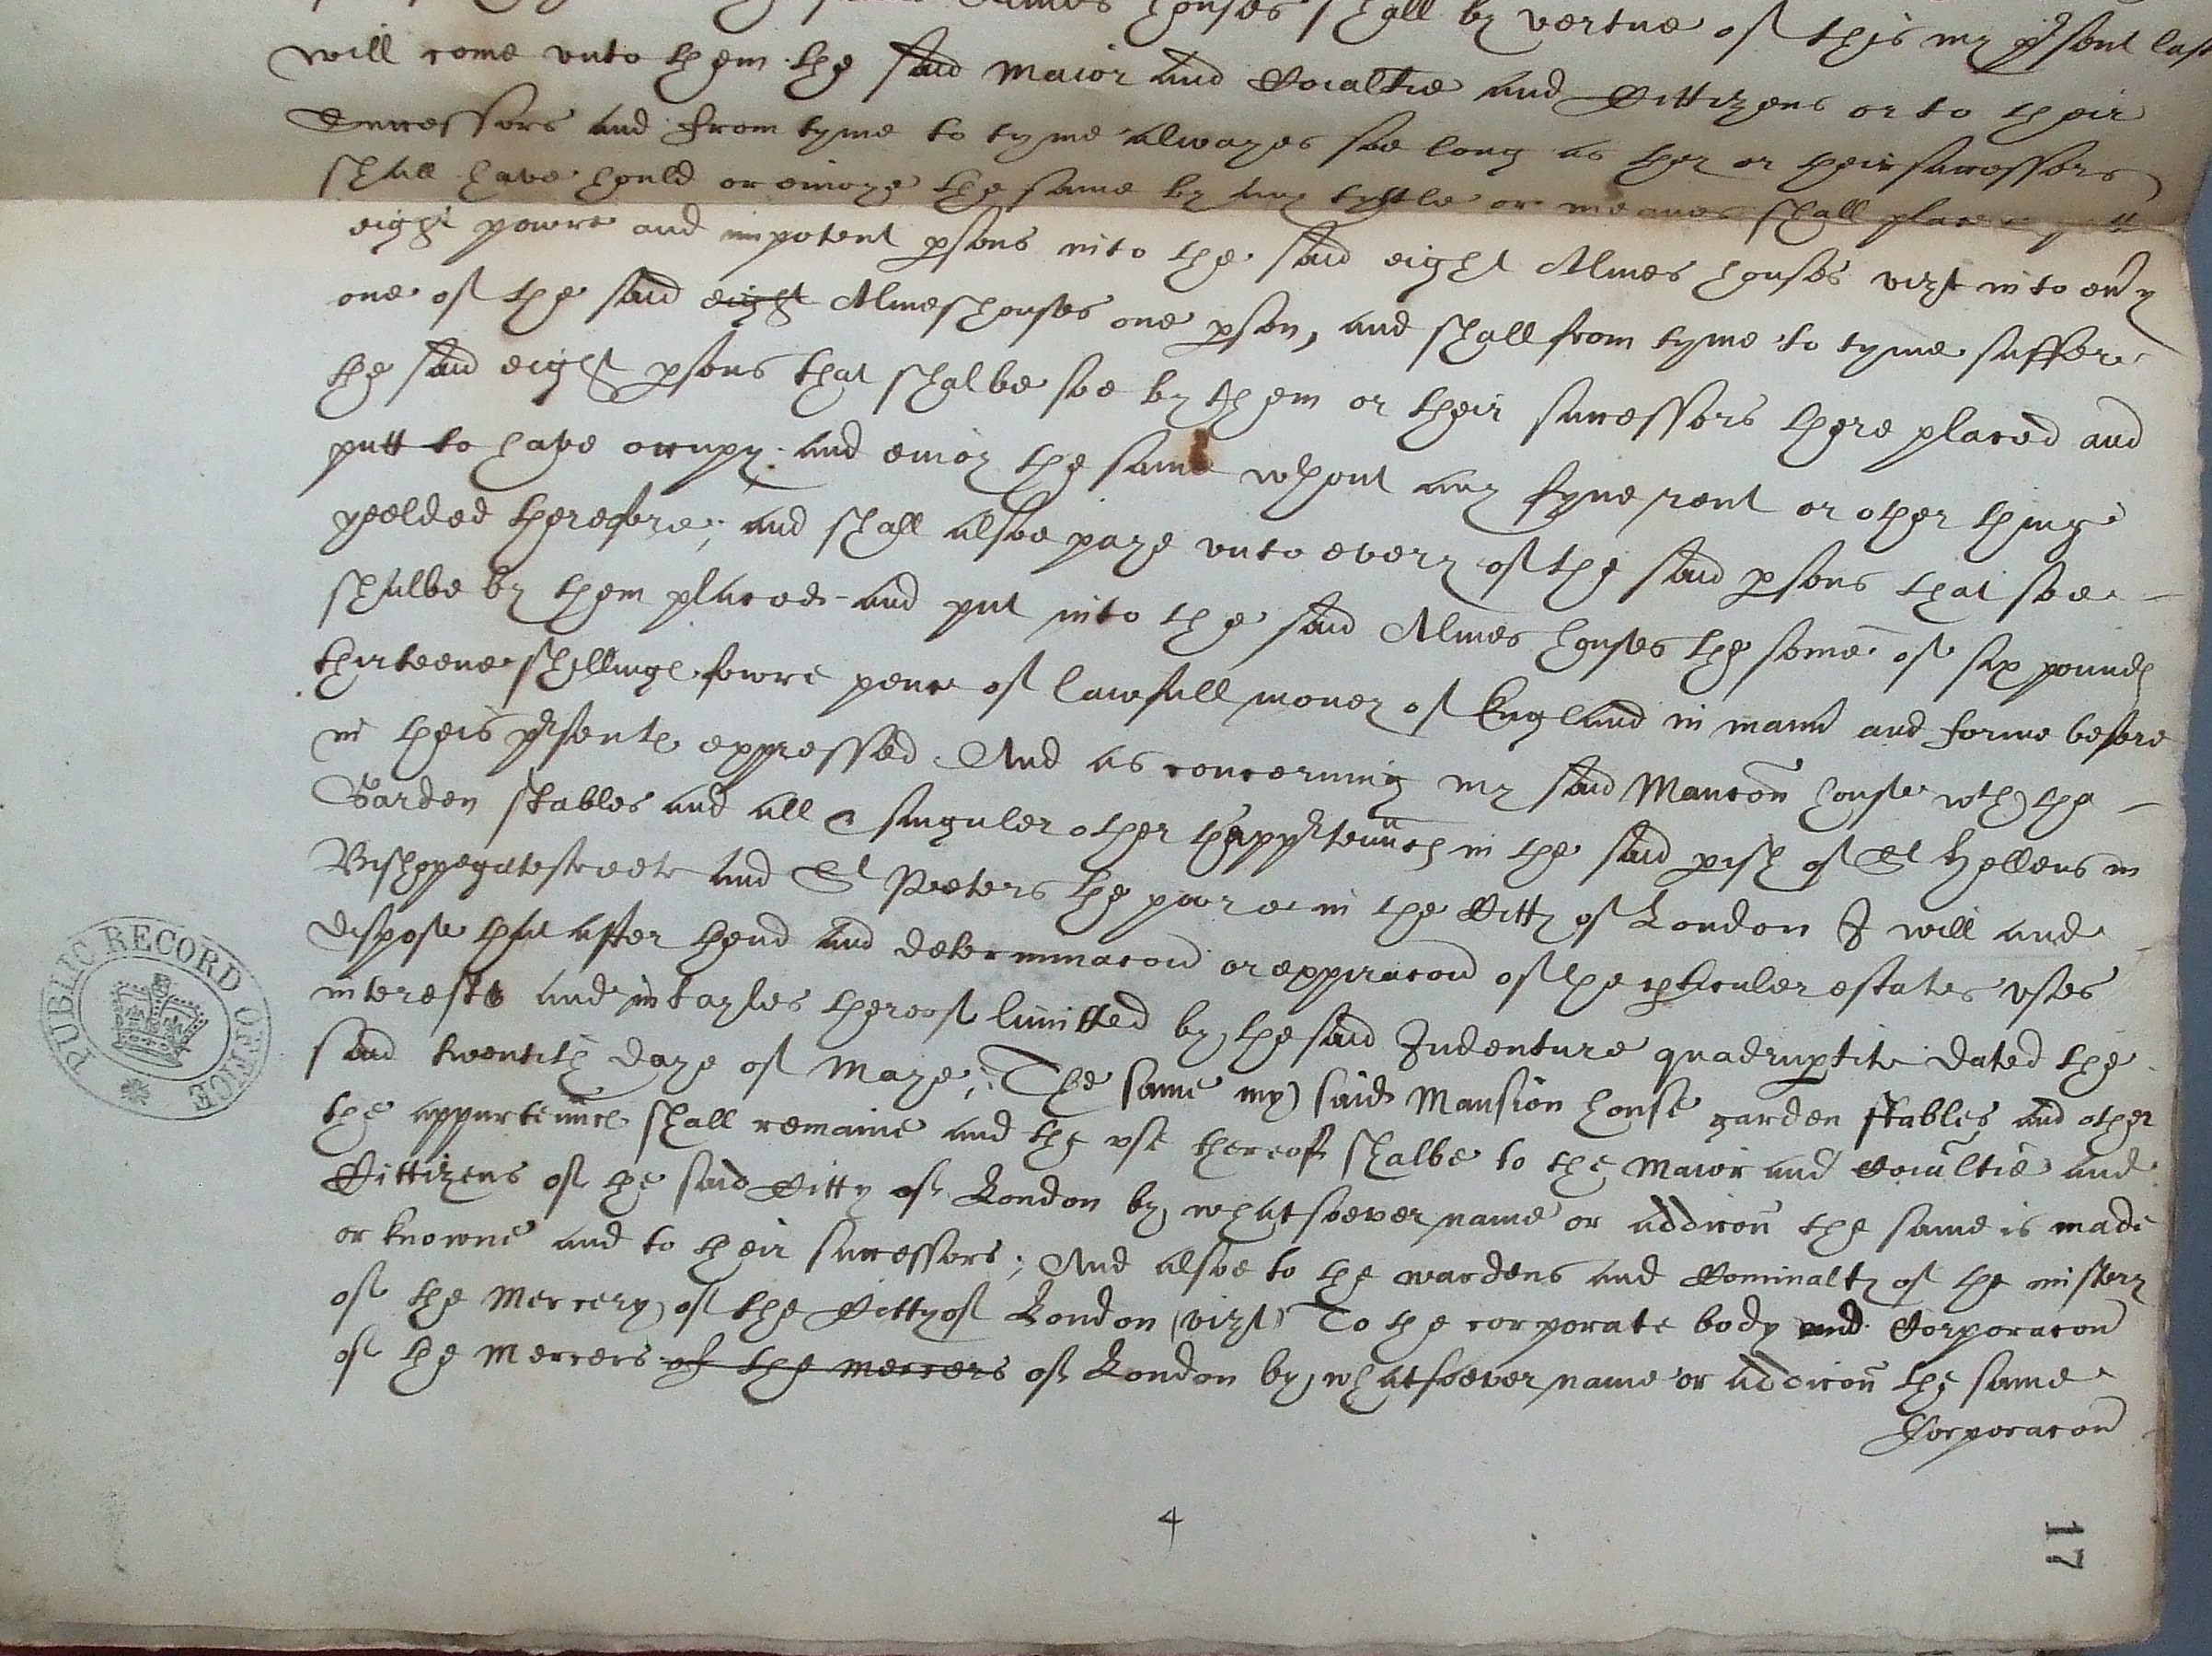 Almes houses shall by vertue of this my pͬsent last
will come vnto them the said Maior and Coialtie and Cittizens or to their
Successors and from tyme to tyme alwayes soe long as they or their successors
shall have hould or enioye the same by any tytle or meanes shall place
eight poore and impotent psons into the said eight Almes houses vizt into eu̾y
one of the said eight Almeshouses one pson, and shall from tyme to tyme suffer
the said eight psons that shalbe soe by them or their successors there placed and
putt to have occupy and enioy the same wthout any fyne rent or other thinge
yeelded therefore; and shall alsoe paye vnto every of the said psons that soe
shalbe by them placed and put into the said Almes houses the some of six pounds
thirteene shillings fowre pence of lawfull money of England in mann̾ and forme before
in theis pͬsents expressed. And as concerning my said Mancōn house wth the
Garden stables and all & singuler other thappͬtenn̄cs in the said pish of St Hellens in
Bishoppegatestreete and St Peeters the poore in the Citty of London I will and
dispose that after thend and determinacon or expiracon of the pticuler estates vses
interests and intayles thereof limitted by the said Indenture quadruptite dated the
said twentith daye of Maye; The same my said Mansion house garden stables and other
the appurtenn̄cs shall remaine and the vse thereof shalbe to the Maior and Coiāltie and
Cittizens of the said Citty of London by whatsoever name or addicōn the same is made
or knowne and to their successors; And alsoe to the wardens and Cominalty of the mistery
of the Mercery of the Citty of London (vizt) To the corporate body and Corporacon
of the Mercers of the Mercers of London by whatsoever name or addicōn the same
Corporacon
4
17
PUBLIC RECORD OFFICE